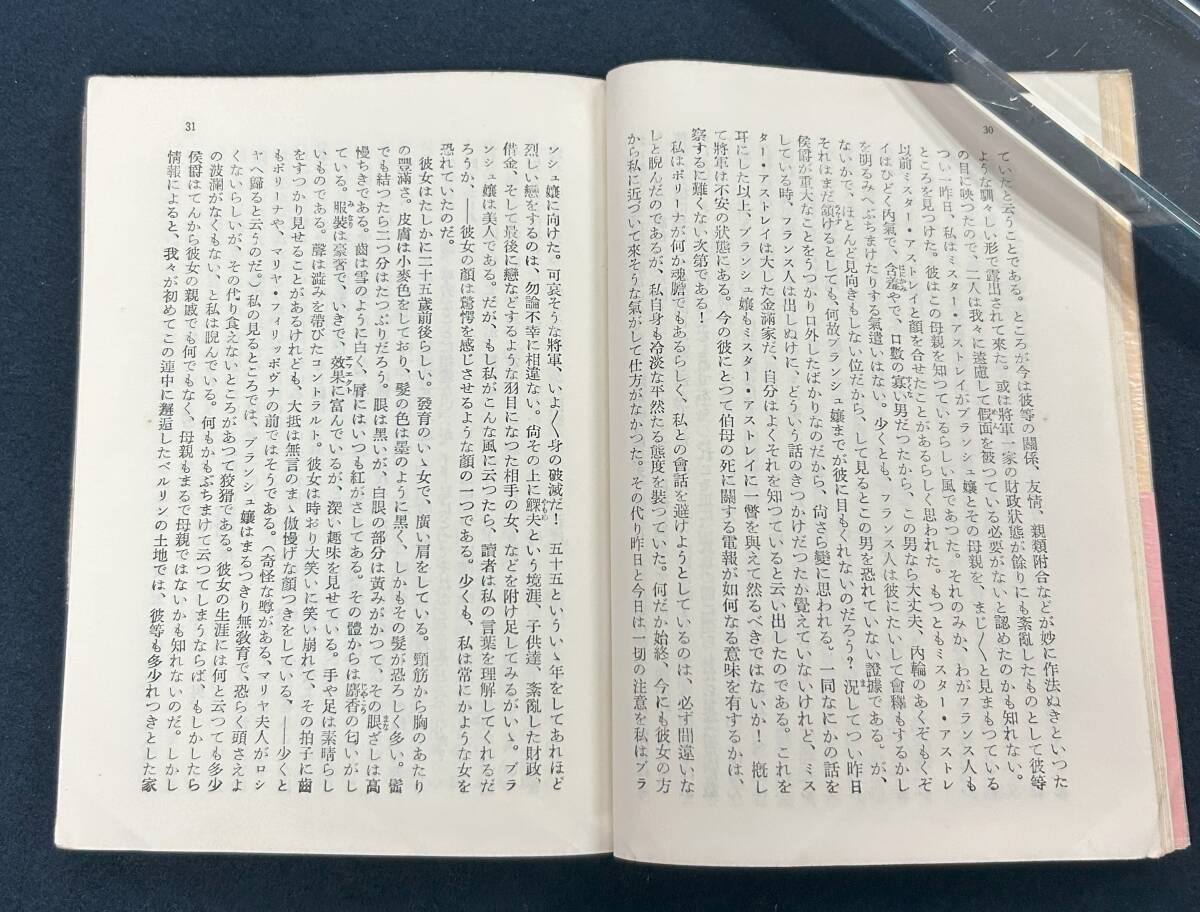 30
ていたと云うことである。ところが今は彼等の關係、友情、親類附合などが妙に作法ぬきといった
ような馴々しい形で露出されて來た。或は將軍一家の財政狀態が餘りにも紊亂したものとして彼等
の目に映つたので、二人は我々に遠慮して假面を被つている必要がないと認めたのかも知れない。
つい一昨日、私はミスター・アストレイがブランシュ孃とその母親を、まじ〳〵と見まもつている
ところを見つけた。彼はこの母親を知つているらしい風であつた。それのみか、わがフランス人も
以前ミスター・アストレイと顏を合せたことがあるらしく思われた。もつともミスター・アストレ
イはひどく內氣で、含羞やで、口數の寡い男だつたから、この男なら大丈夫、內輪のあくぞもくぞ
を明るみへぶちまけたりする氣遣いはない。少くとも、フランス人は彼にたいして會釋もするかし
ないかで、ほとんど見向きもしない位だから、して見るとこの男を恐れていない證據である。が、
それはまだ頷けるとしても、何故ブランシュ孃までが彼に目もくれないのだろう？況してつい昨日
侯爵が重大なことをうつかり口外したばかりなのだから、尙さら變に思われる。一同なにかの話を
している時、フランス人は出しぬけに、どういう話のきつかけだつたか覺えていないけれど、ミス
ター・アストレイは大した金滿家だ、自分はよくそれを知つている、と云い出したのである。これを
耳にした以上、ブランシュ孃もミスター・アストレイに一瞥を與えて然るべきではないか！槪し
て將軍は不安の狀態にある。今の彼にとつて伯母の死に關する電報が如何なる意味を有するかは、
察するに難くない次第である！
私はポリーナが何か魂膽でもあるらしく、私との會話を避けようとしているのは、必ず間違いな
しと睨んだのであるが、私自身も冷淡な平然たる態度を裝つていた。何だか始終、今にも彼女の方
から私に近づいて來そうな氣がして仕方がなかつた。その代り昨日と今日は一切の注意を私はブラ
31
ンシュ孃に向けた。可哀そうな將軍、いよ〳〵身の破滅だ！五十五といういゝ年をしてあれほど
烈しい戀をするのは、勿論不幸に相違ない。尙その上に鰥夫という境涯、子供達、紊亂した財政、
借金、そして最後に戀などするような羽目になつた相手の女、などを附け足してみるがいゝ。ブラ
ンシュ孃は美人である。だが、もし私がこんな風に云つたら、讀者は私の言葉を理解してくれるだ
ろうか、――彼女の顏は驚愕を感じさせるような顏の一つである。少くも、私は常にかような女を
恐れていたのだ。
彼女はたしかに二十五歲前後らしい。發育のいゝ女で、廣い肩をしている。頸筋から胸のあたり
の豐滿さ。皮膚は小麥色をしており、髮の色は墨のように黑く、しかもその髮が恐ろしく多い。髷
でも結つたら二つ分はたつぷりだろう。眼は黑いが、白眼の部分は黃みがかつて、その眼ざしは高
慢ちきである。齒は雪のように白く、脣にはいつも紅がさしてある。その體からは麝香の匂いがし
ている。服裝は豪奢で、いきで、效果に富んでいるが、深い趣味を見せている。手や足は素晴らし
いものである。聲は澁みを帶びたコントラルト。彼女は時おり大笑いに笑い崩れて、その拍子に齒
をすつかり見せることがあるけれども、大抵は無言のまゝ傲慢げな顏つきをしている、――少くと
もポリーナや、マリヤ・フィリッポヴナの前ではそうである。（奇怪な噂がある、マリヤ夫人がロシ
ヤへ歸ると云うのだ。）私の見るところでは、ブランシュ孃はまるつきり無敎育で、恐らく頭さえよ
くないらしいが、その代り食えないところがあつて狡猾である。彼女の生涯には何と云つても多少
の波瀾がなくもない、と私は睨んでいる。何もかもぶちまけて云つてしまうならば、もしかしたら
侯爵はてんから彼女の親戚でも何でもなく、母親もまるで母親ではないかも知れないのだ。しかし
情報によると、我々が初めてこの連中に邂逅したベルリンの土地では、彼等も多少れつきとした家